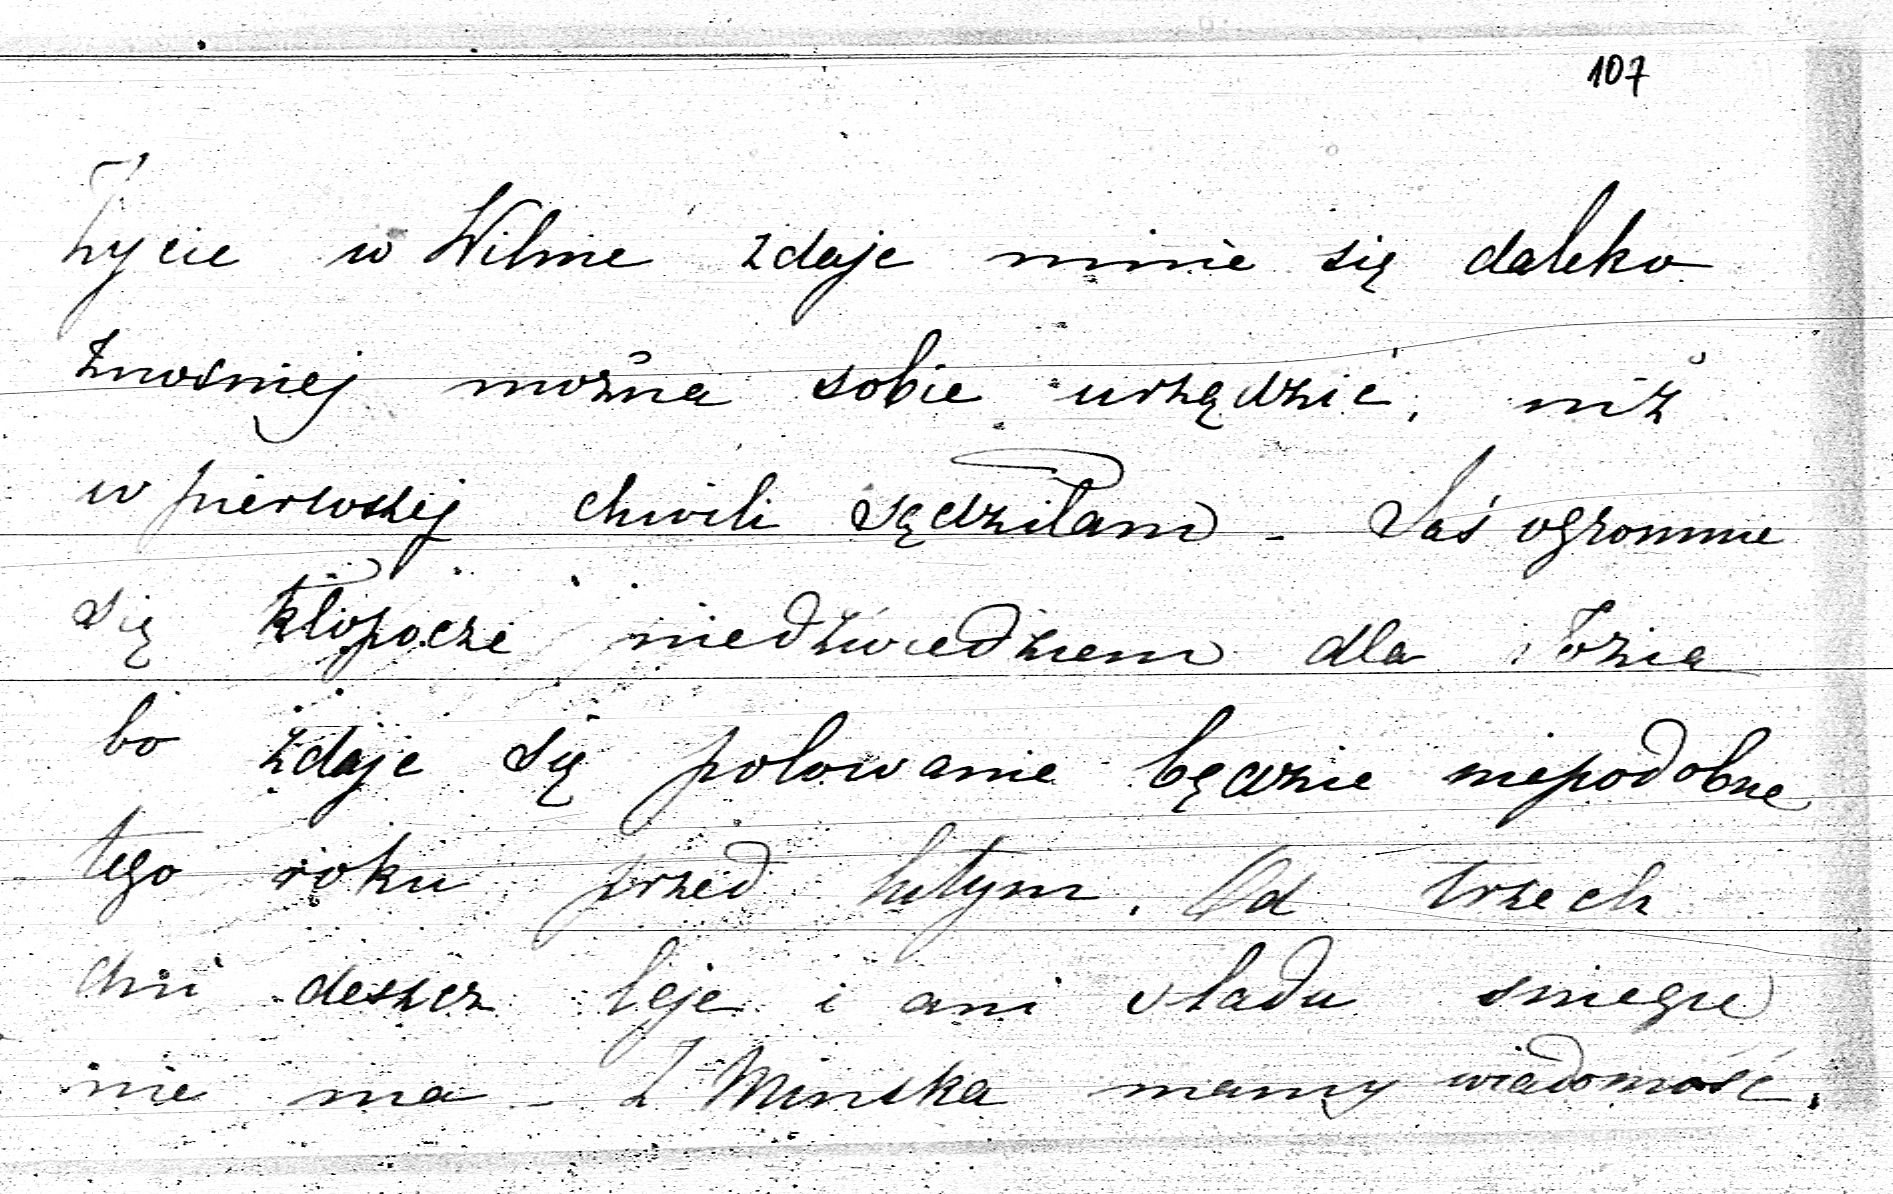 107
Życie w Wilnie zdaje mnie się daleko
znośniej można sobie urządzić, niż
w pierwszej chwili sądziłam - Jaś ogromnie
się kłopocze niedźwiedziem dla Józia
bo zdaje się polowanie będzie niepodobne
tego roku przed lutym. Od trzech
dni deszcz leje i ani śladu śniegu
nie ma - Z Mińska mamy wiadomość,